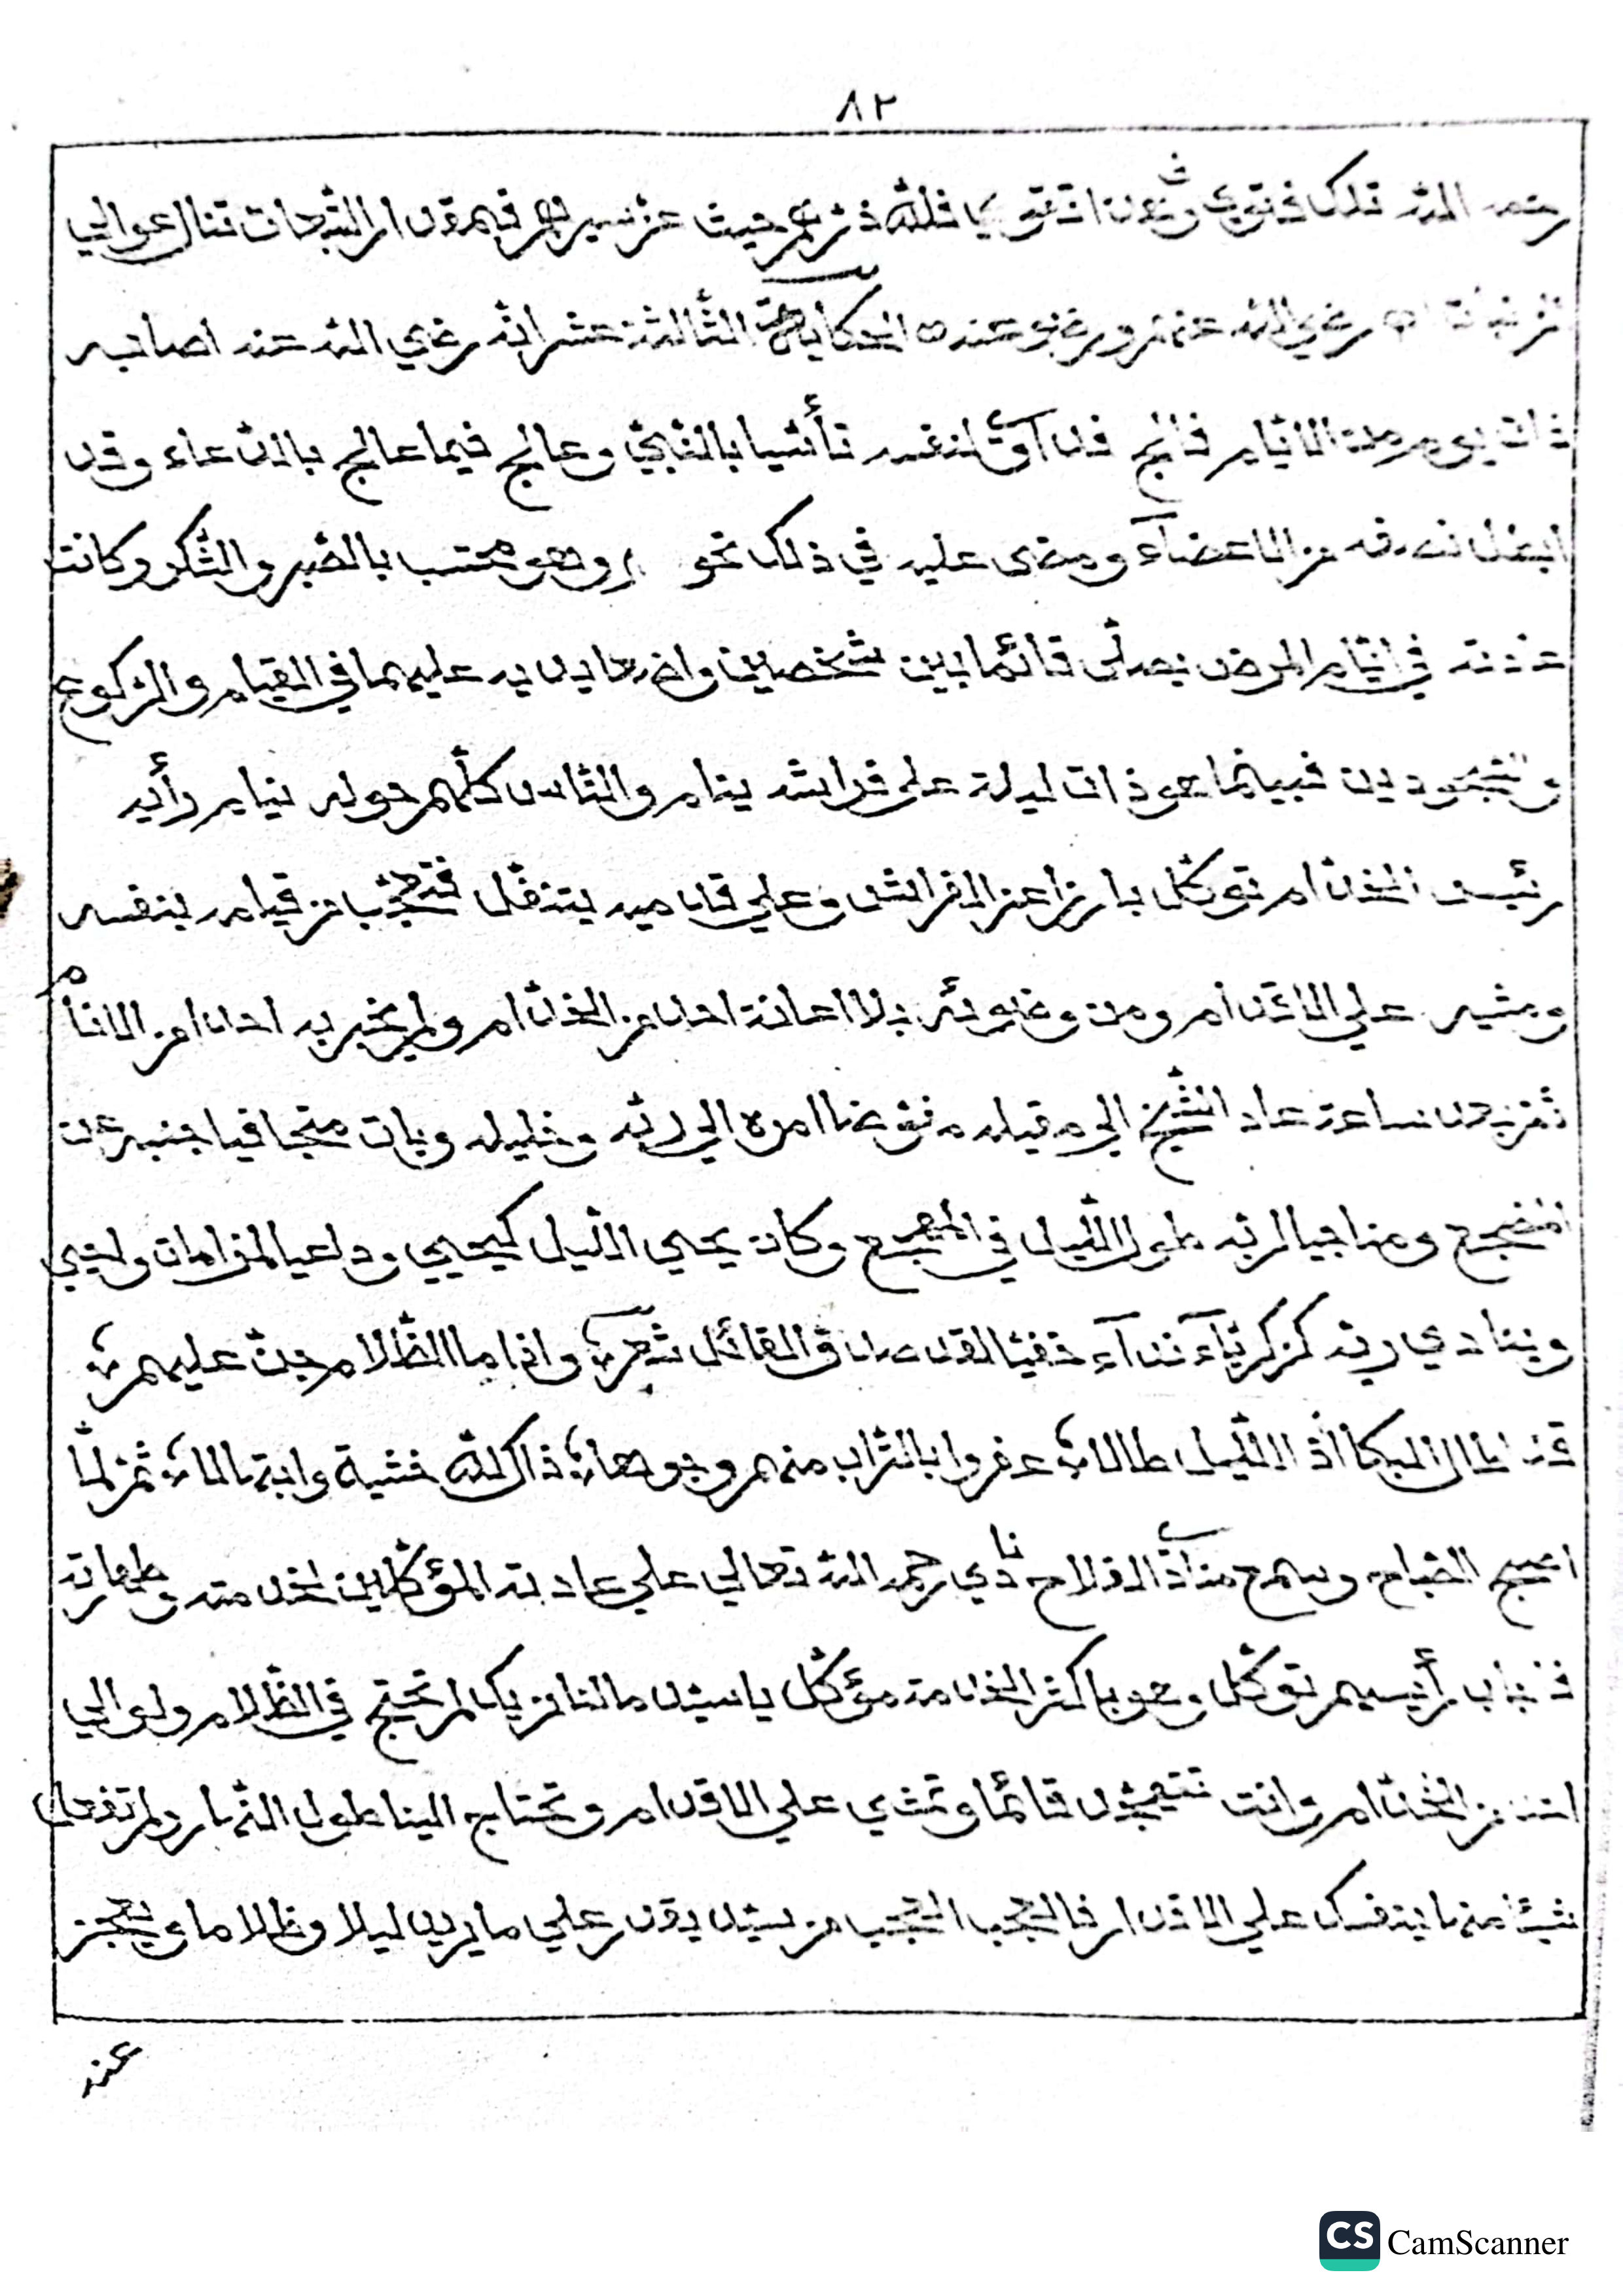 ٨٢
رحمه الله تلك فتوى وبدون افتقوي فلله درهم حيث عن سيرهم فبمقدار الدرجات تنال عوالي
رضي الله عنهم ورضوا عنه الحكاية الثالثة عشر انه رضي الله عنه اصابه
ذات يوم من الايام فالج فداوى لنفسه تأسيا بالنبي وعالج فيما عالج بالدعاء وقد
ابطل نصفه من الاعضاء ومضى عليه في ذلك نحو وهو محتسب بالصبر والشكر وكانت
عادته في ايام المرض يصلي قائما بين شخصين واضعا يديه عليهما في القيام والركوع
والسجودين فبينما هو ذات ليلة على فراشه ينام والناس كلهم حوله نيام رأيه
رئيس الخدام توكل بارزا عن الفراش وعلي قدميه يتنفل فتعجب من قيامه بنفسه
ومشيه علي الاقدام ومن وضوئه بلا اعانة احد من الخدام ولم يخبر به احدا من الانام
ثم بعد ساعة عاد الشيخ الي مقيله مفوضا امره الي ربه وخليله وبات متجافيا جنبه عن
المضجع ومناجيا لربه طول الليل في المهجع وكان يحيي الليل كيحيي وداعيا
وينادي ربه كزكرياء نداء خفيا لقد صدق القائل شعر واذا ما الظلام جن عليهم
قد اطال البكا اذ الليل طالا عفروا بالتراب منهم وجوها ذاك لله خشية وابتهالا ثم لما
اصبح الصباح وسمع منادي الفلاح نادي رحمه الله تعالي علي عادته المؤكلين لخدمته وطهارته
فاجاب رئيسهم توكل وهو باكثر الخدامة مؤكل يا سيدي مالنا نريك لم تحتج في الظلام ولو الي
احد من الخدام وانت تتهجد قائما وتمشي علي الاقدام وتحتاج الينا طول النهار ولم تفعل
شيئا منها بنفسك علي الاقدام فالعجب العجب من سيد يقدر علي ما يريد ليلا وظلاما ويعجز
عنه
CamScanner